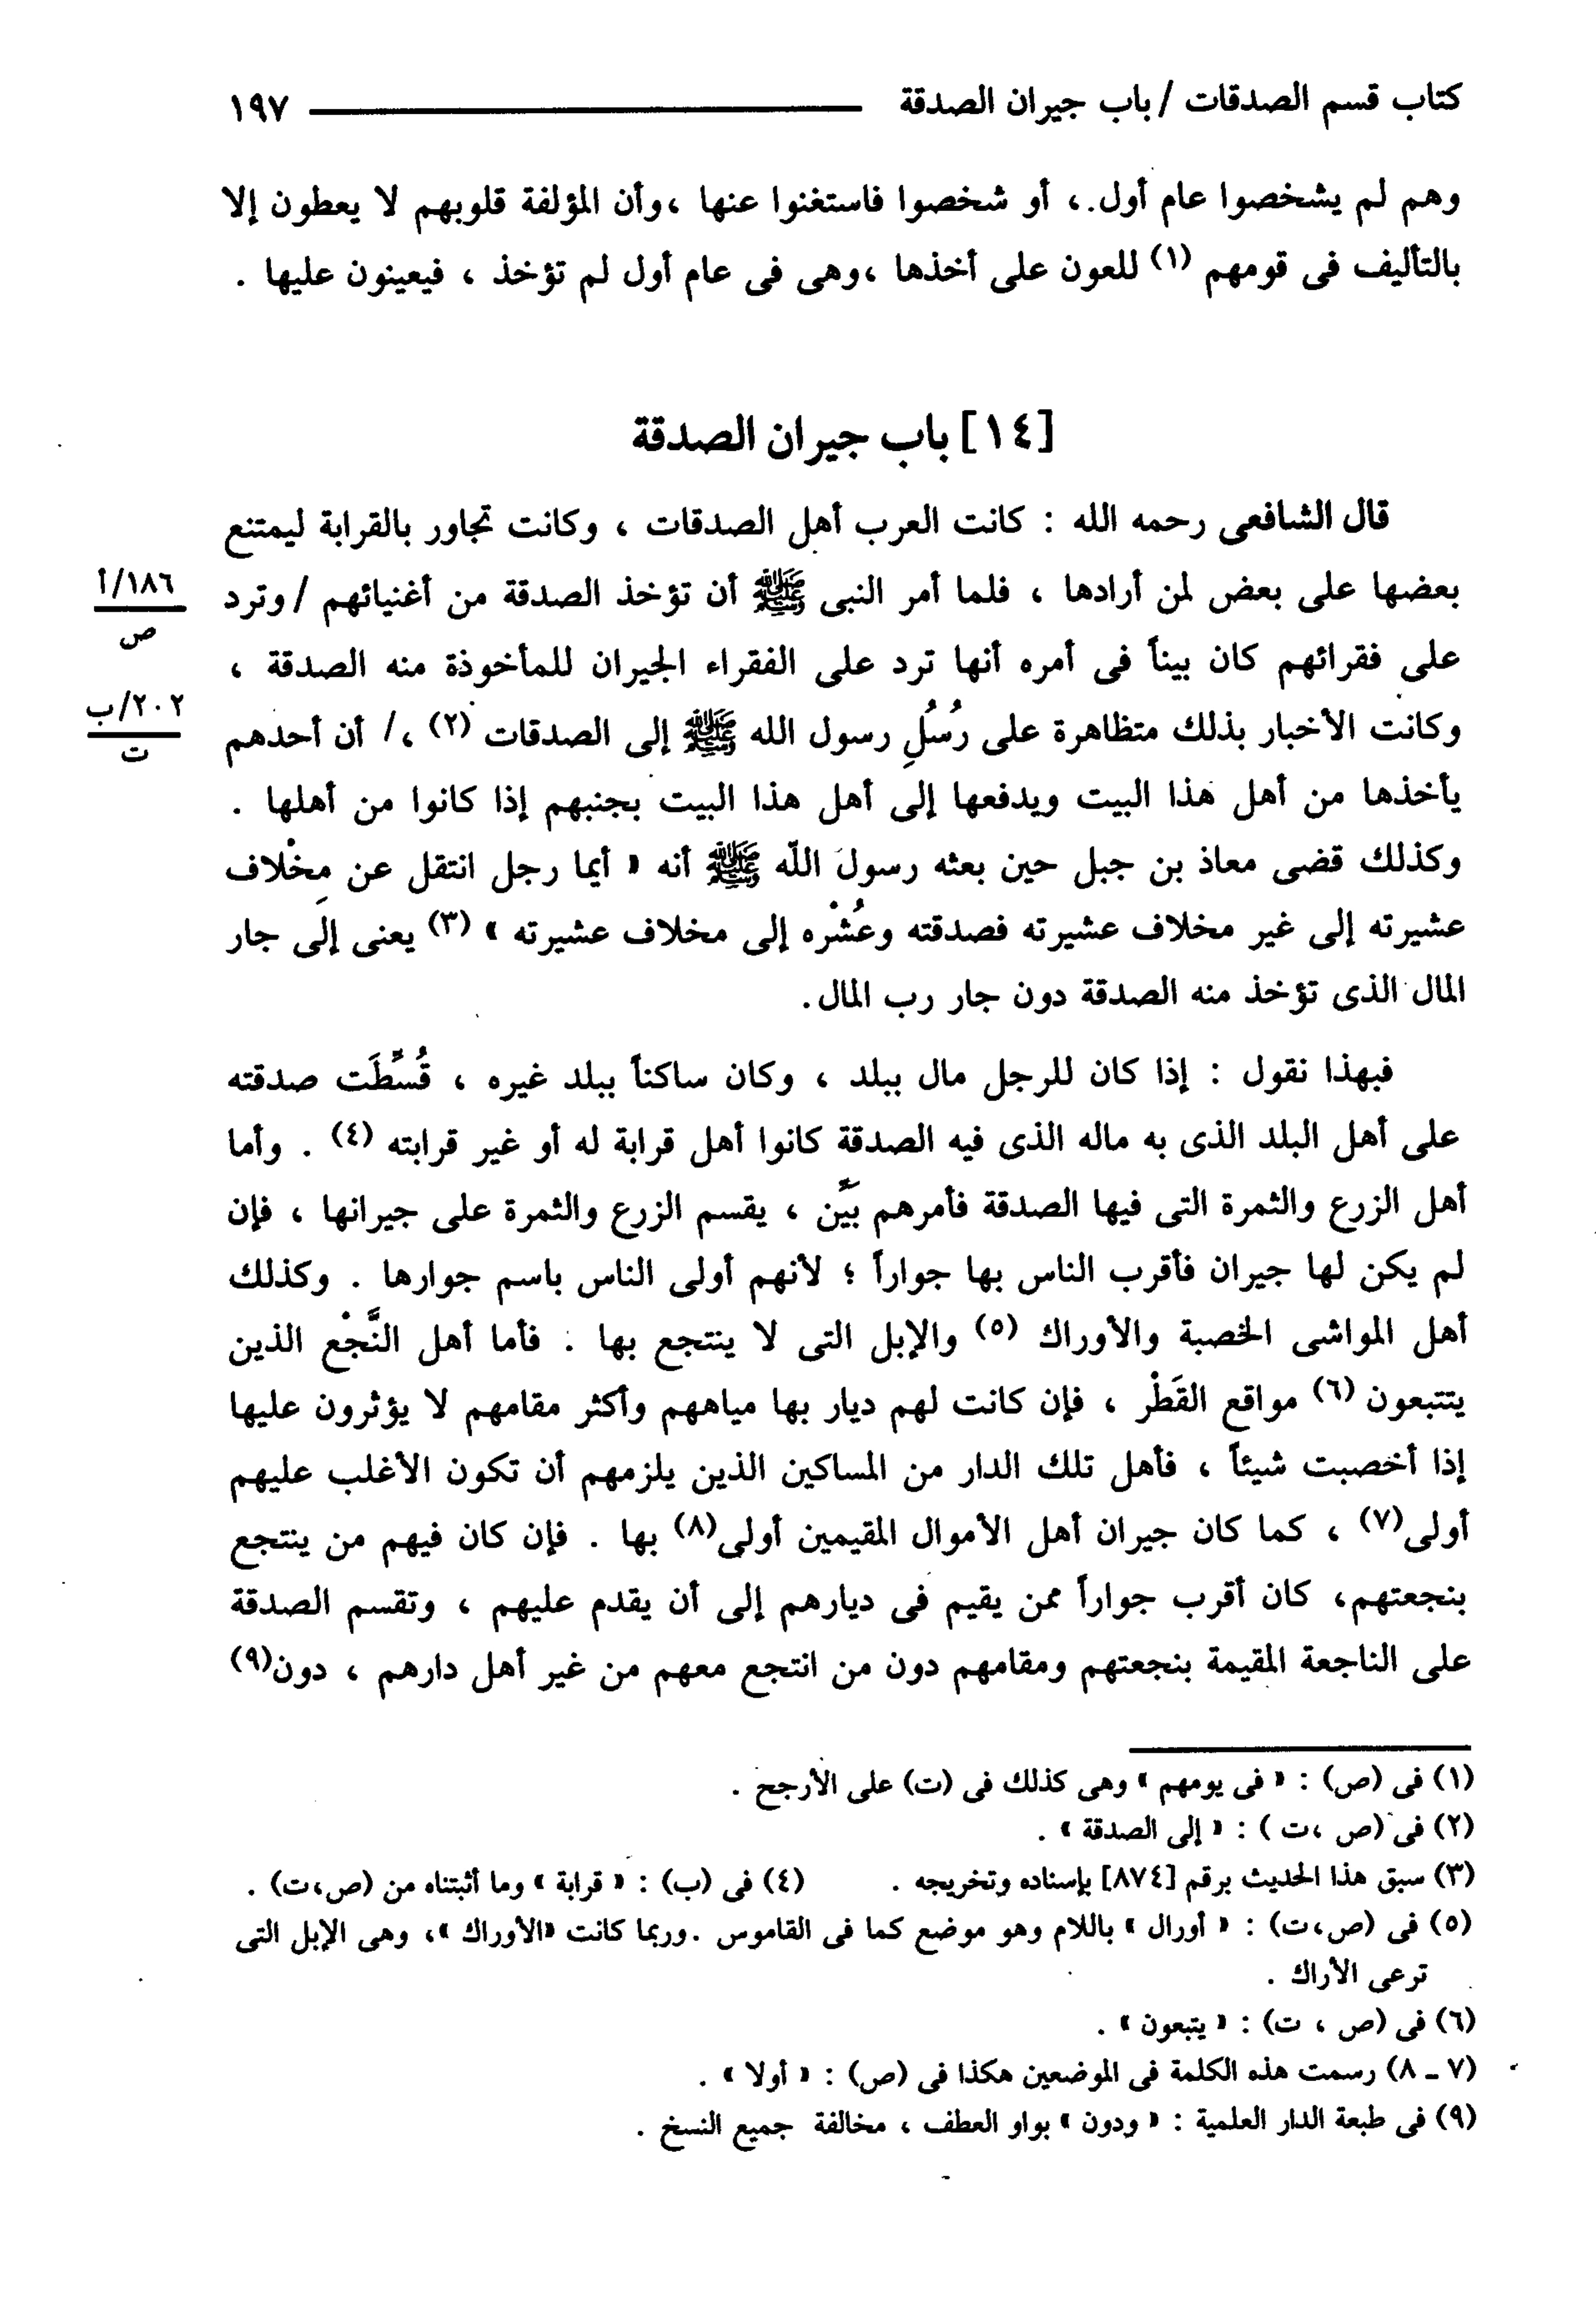 كتاب قسم الصدقات / باب جيران الصدقة ١٩٧
وهم لم يشخصوا عام أول ، أو شخصوا فاستغنوا عنها ،وأن المؤلفة قلوبهم لا يعطون إلا
بالتأليف فى قومهم (١) للعون على أخذها ،وهى فى عام أول لم تؤخذ ، فيعينون عليها .
[١٤] باب جيران الصدقة
قال الشافعى رحمه الله : كانت العرب أهل الصدقات ، وكانت تجاور بالقرابة ليمتنع
بعضها على بعض لمن أرادها ، فلما أمر النبى ﷺ أن تؤخذ الصدقة من أغنيائهم / وترد
١٨٦/أ
ص
على فقرائهم كان بيناً فى أمره أنها ترد على الفقراء الجيران للمأخوذة منه الصدقة ،
وكانت الأخبار بذلك متظاهرة على رُسُلِ رسول الله ﷺ إلى الصدقات (٢) ،/ أن أحدهم
٢٠٢/ب
ت
يأخذها من أهل هذا البيت ويدفعها إلى أهل هذا البيت بجنبهم إذا كانوا من أهلها .
وكذلك قضى معاذ بن جبل حين بعثه رسولَ اللّه ﷺ أنه « أيما رجل انتقل عن مِخْلاف
عشيرته إلى غير مخلاف عشيرته فصدقته وعُشْره إلى مخلاف عشيرته » (٣) يعنى إلى جار
المال الذى تؤخذ منه الصدقة دون جار رب المال.
فبهذا نقول : إذا كان للرجل مال ببلد ، وكان ساكناً ببلد غيره ، قُسِّطَت صدقته
على أهل البلد الذى به ماله الذى فيه الصدقة كانوا أهل قرابة له أو غير قرابته (٤) . وأما
أهل الزرع والثمرة التى فيها الصدقة فأمرهم بَيِّن ، يقسم الزرع والثمرة على جيرانها ، فإن
لم يكن لها جيران فأقرب الناس بها جواراً ؛ لأنهم أولى الناس باسم جوارها . وكذلك
أهل المواشى الخصبة والأوراك (٥) والإبل التى لا ينتجع بها . فأما أهل النَّجْع الذين
يتتبعون (٦) مواقع القَطْر ، فإن كانت لهم ديار بها مياههم وأكثر مقامهم لا يؤثرون عليها
إذا أخصبت شيئاً ، فأهل تلك الدار من المساكين الذين يلزمهم أن تكون الأغلب عليهم
أولى(٧) ، كما كان جيران أهل الأموال المقيمين أولى(٨) بها . فإن كان فيهم من ينتجع
بنجعتهم، كان أقرب جواراً ممن يقيم فى ديارهم إلى أن يقدم عليهم ، وتقسم الصدقة
على الناجعة المقيمة بنجعتهم ومقامهم دون من انتجع معهم من غير أهل دارهم ، دون(٩)
(١) فى (ص) : « فى يومهم » وهى كذلك فى (ت) على الأرجح .
(٢) فى (ص ،ت ) : « إلى الصدقة » .
(٣) سبق هذا الحديث برقم [٨٧٤] بإسناده وتخريجه . (٤) فى (ب) : « قرابة » وما أثبتناه من (ص،ت) .
(٥) فى (ص،ت) : « أورال » باللام وهو موضع كما فى القاموس .وربما كانت «الأوراك »، وهى الإبل التى
ترعى الأراك .
(٦) فى (ص ، ت) : « يتبعون » .
(٧ ـ ٨) رسمت هذه الكلمة فى الموضعين هكذا فى (ص) : « أولا » .
(٩) فى طبعة الدار العلمية : « ودون » بواو العطف ، مخالفة جميع النسخ .